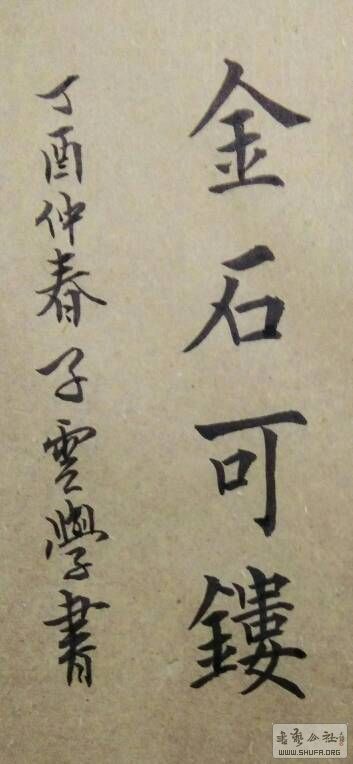 金石可鏤
丁酉仲春子雲學書
书艺公社
WWW.SHUFA.ORG